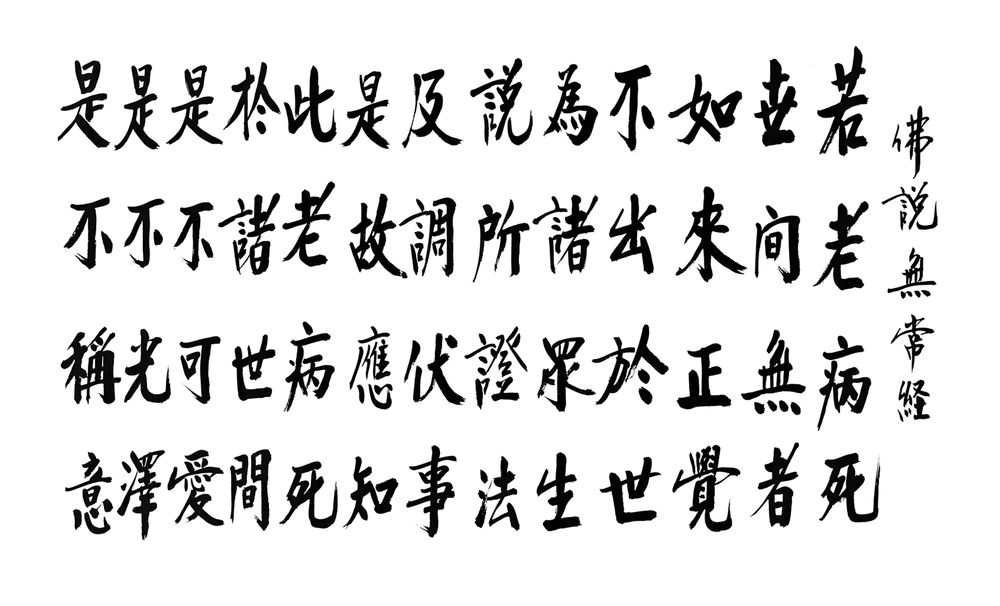 佛說無常経
若老病死
世間無者
如來正覺
不出於世
為諸眾生
說所證法
及調伏事
是故應知
此老病死
於諸世間
是不可愛
是不光澤
是不稱意